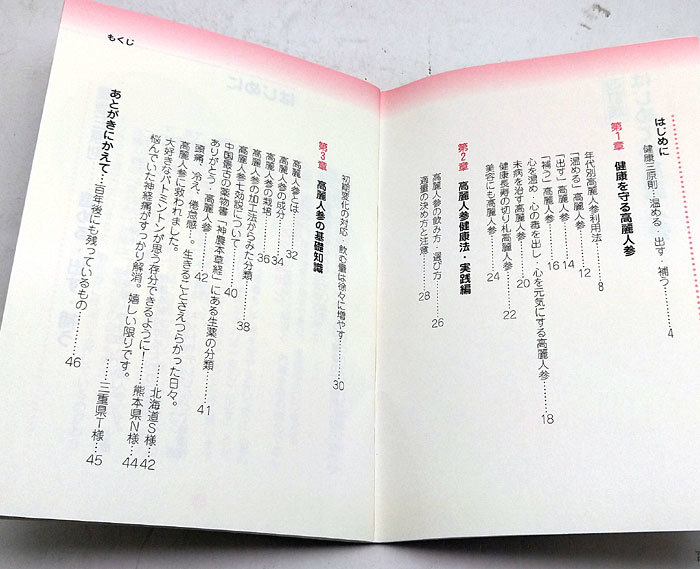 もくじ
はじめに
健康三原則…温める・出す・補う……4
第1章 健康を守る高麗人参
年代別高麗人参利用法……8
「温める」高麗人参……12
「出す」高麗人参……14
「補う」高麗人参……16
心を温め・心の毒を出し・心を元気にする高麗人参……18
未病を治す高麗人参……20
健康長寿の切り札高麗人参……22
美容にも高麗人参……24
第2章 高麗人参健康法・実践編
高麗人参の飲み方・選び方……26
適量の決め方と注意……28
初期変化の対応 飲む量は徐々に増やす……30
第3章 高麗人参の基礎知識
高麗人参とは……32
高麗人参の成分……34
高麗人参の栽培……36
高麗人参の加工法からみた分類……38
高麗人参七効説について……40
中国最古の薬物書「神農本草経」にある生薬の分類……41
ありがとう、高麗人参……42
頭痛、冷え、倦怠感…。生きることさえつらかった日々。
高麗人参に救われました。……北海道S様…42
大好きなバトミントンが思う存分できるように!……熊本県N様…44
悩んでいた神経痛がすっかり解消。嬉しい限りです。……三重県T様…45
あとがきにかえて…百年後にも残っているもの……46